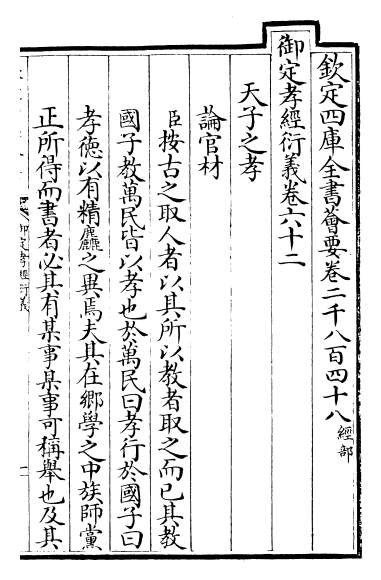 欽定四庫全書薈要卷二千八百四十八 經部
御定孝經衍義卷六十二
天子之孝
論官材
臣按古之取人者以其所以教者取之而已其教
國子教萬民皆以孝也於萬民曰孝行於國子曰
孝德以有精麤之異焉夫其在鄉學之中族師黨
正所得而書者必其有某事某事可稱舉也及其
御定孝經衍義
一